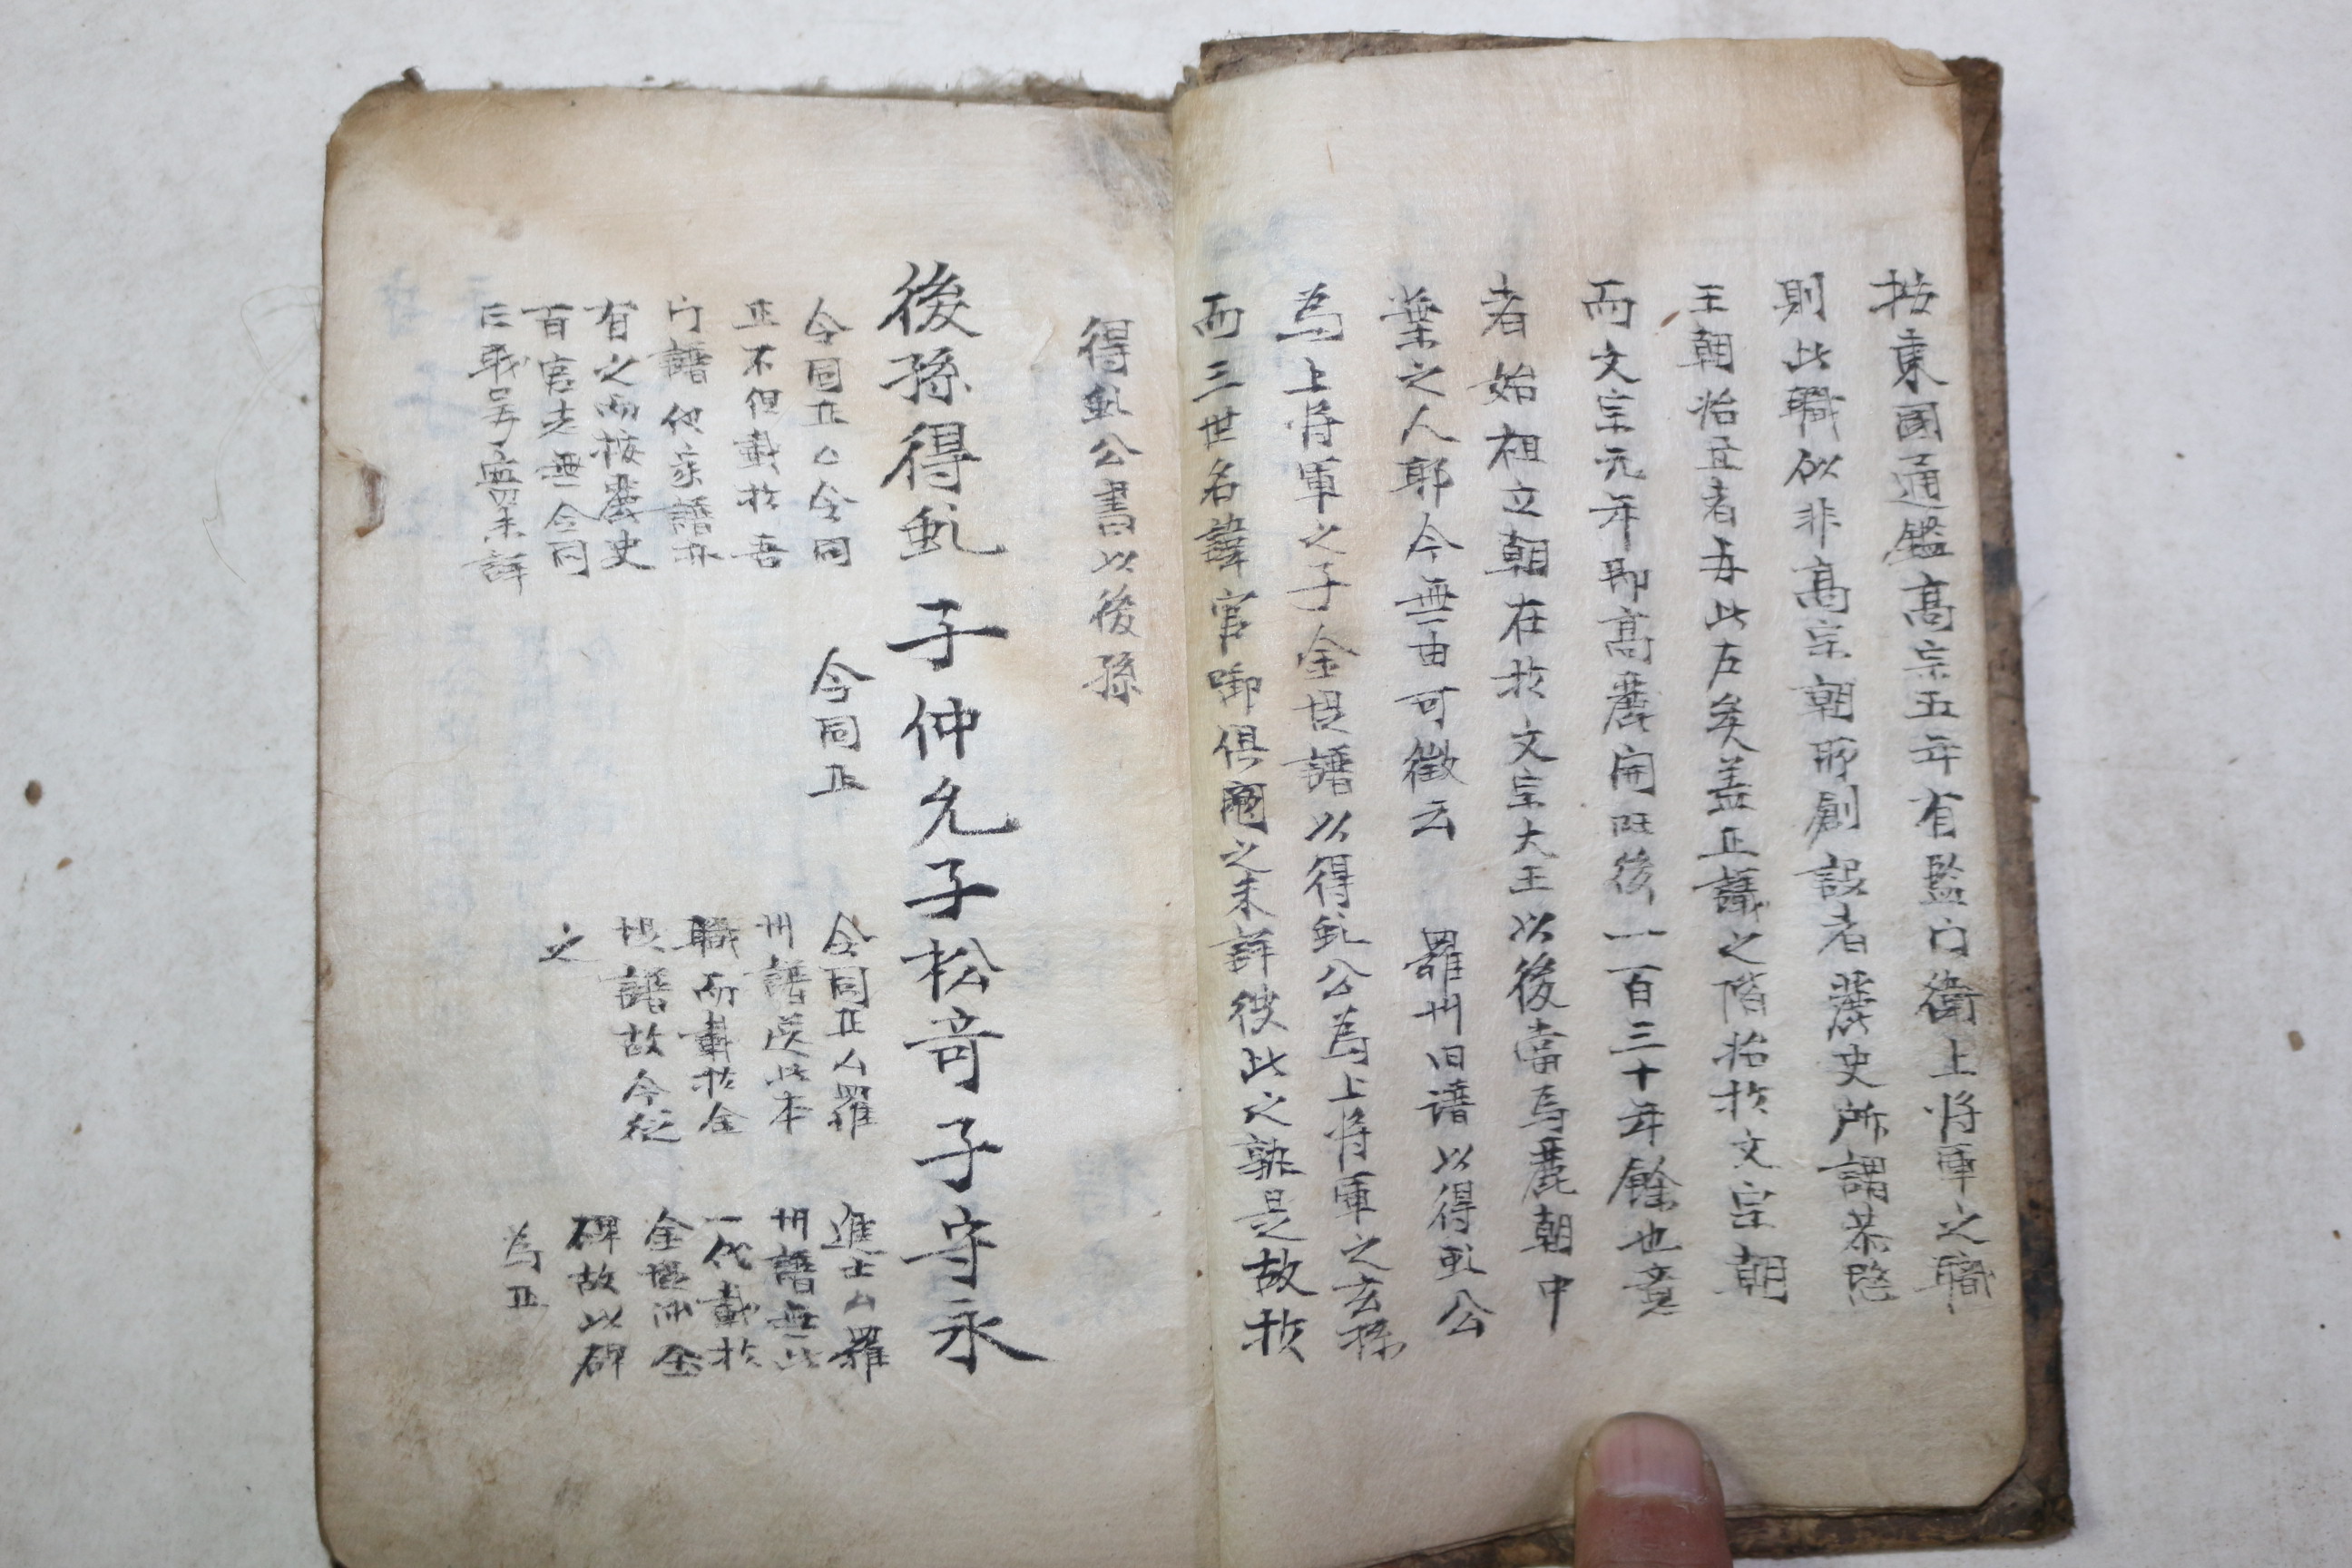 按東國通鑑高宗五年有監门衛上將軍之職
則此職似非高宗朝所創設者麗史所謂恭愍
王朝始立者再此左矣盖正議之階始於文宗朝
而文宗元年即高麗開旺後一百三十年餘也意
者始祖立朝在於文宗大王以後當爲麗朝中
葉之人耶今無由可徵云 羅州旧譜以得虬公
爲上將軍之子金堤譜以得虬公爲上將軍之玄孫
而三世名諱官啣俱闕之未詳彼此之孰是故於
得虬公書以後孫
後孫得虬 子仲允子松奇子守永
令同正厶令同
正不但載於吾
门譜他家譜亦
有之而按麗史
百官志無令同
正
令同正
令同正厶羅
州譜送此本
職而載於金
堤譜故今從
之
進士厶羅
州譜無此
一代載於
金堤而金
碑故以碑
爲正